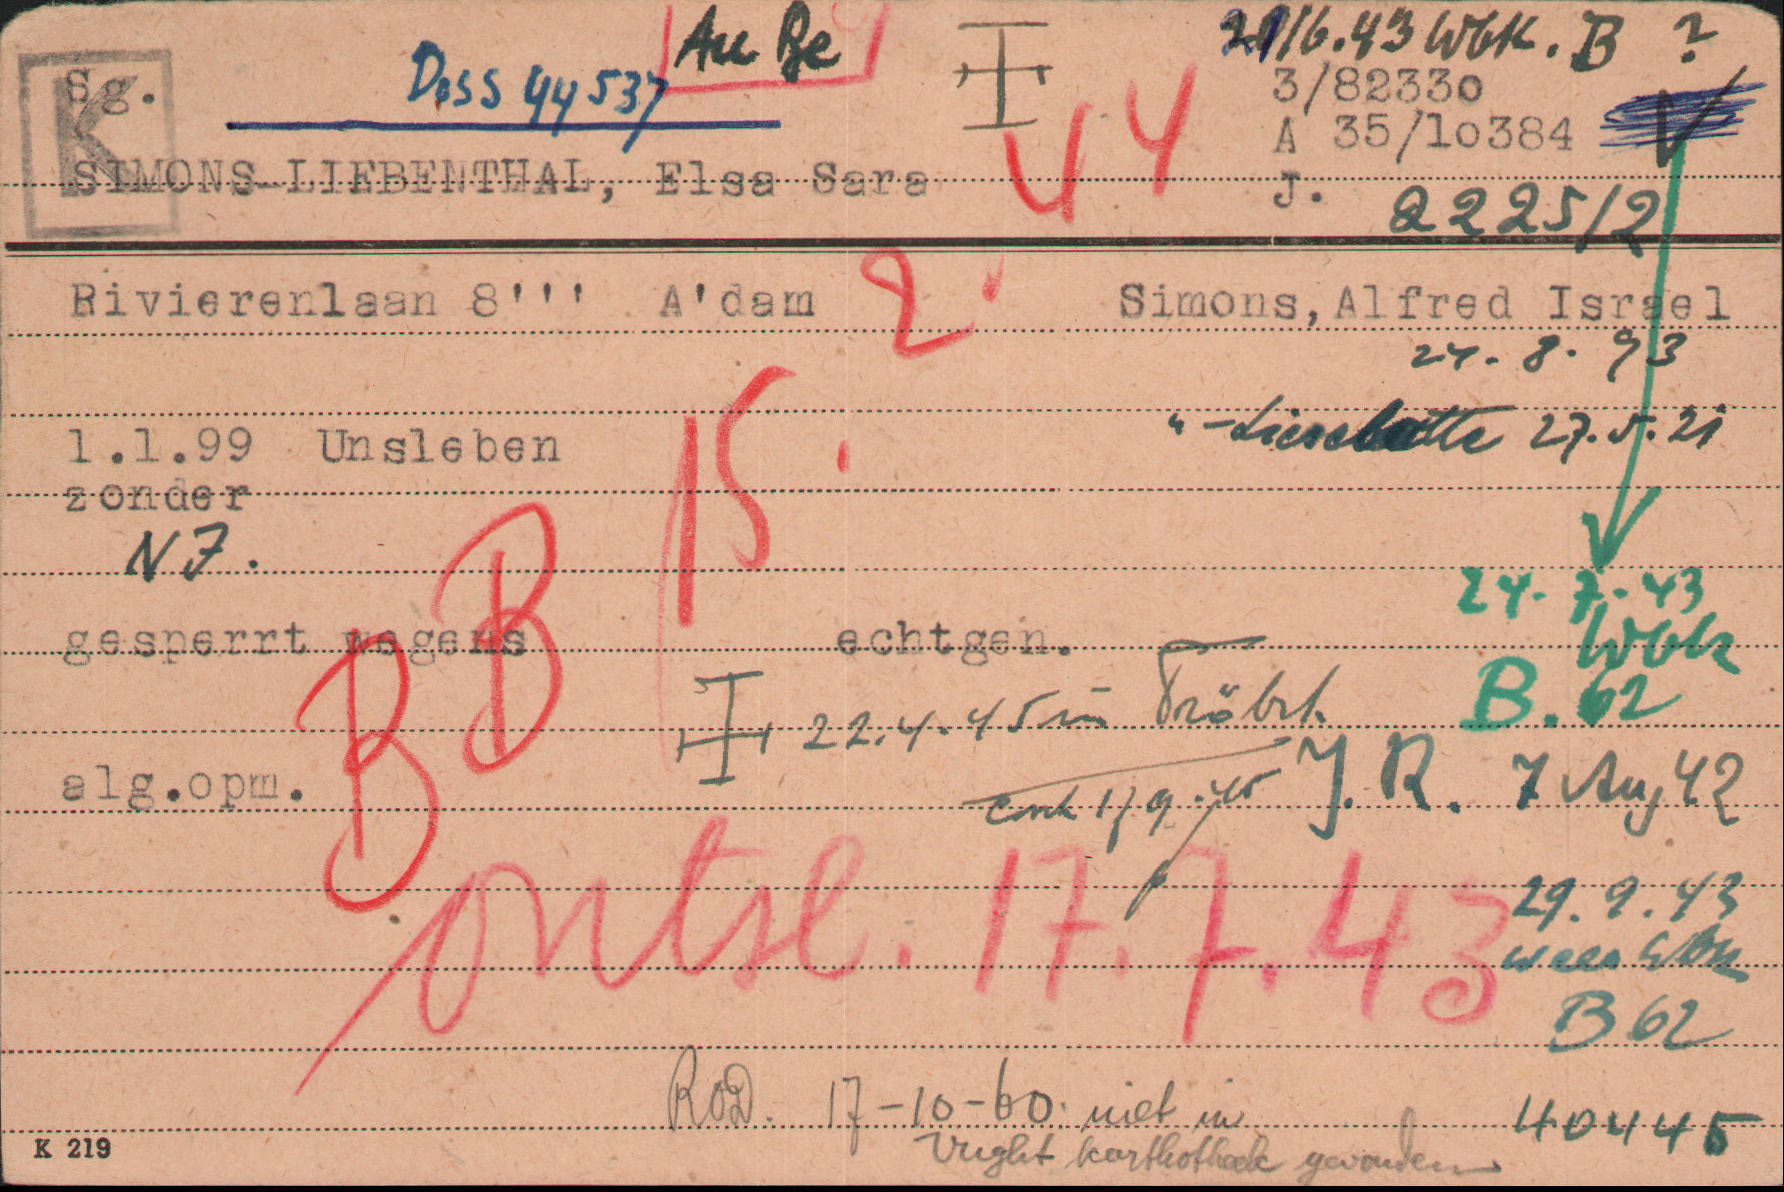 K
Sg.
Doss 44537
Au Be
2 /6.43 Wbk. B ?
3/82330
A 35/10384
SIMONS-LIEBENTHAL, Elsa Sara
44
J. 2225/2
Rivierenlaan 8''' A'dam
2
Simons, Alfred Israel
24.8.93
" - Lieselotte 27.5.21
1.1.99 Unsleben
15
zonder
NJ.
24.7.43
Wbk
B. 62
gesperrt wegens echtgen.
B B
22.4.45 in Tröbit.
alg.opm.
17/9.45
J. R. 7 Aug 42
ontsl. 17.7.43
29.9.43
weer Wbk
B 62
ROD. 17-10-60. niet in
Vught karthotheek gevonden
40445
K 219